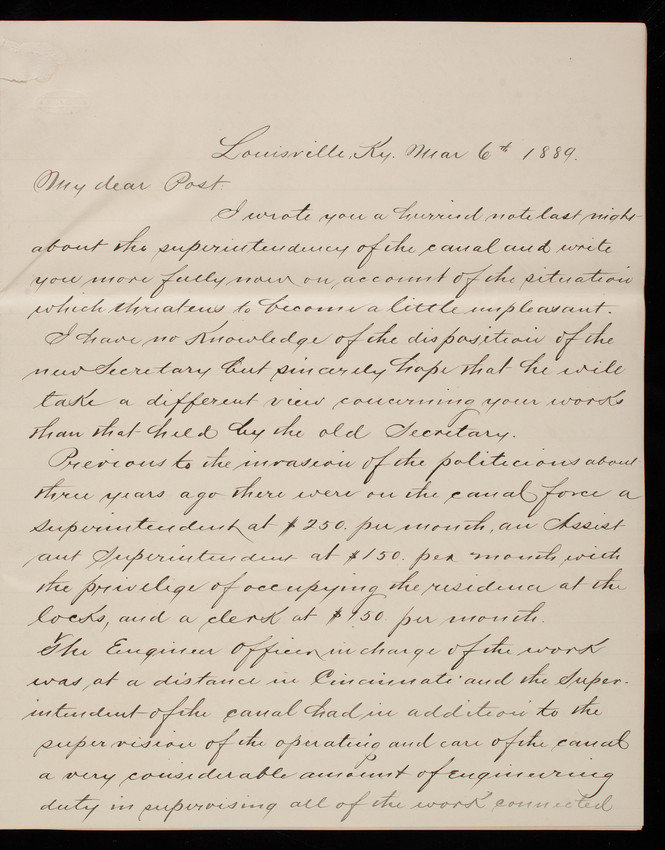 Louisville, Ky. Mar 6th 1889.
My dear Post.
I wrote you a hurried note last night
about the superintendency of the canal and write
you more fully now on account of the situation
which threatens to become a little unpleasant.
I have no knowledge of the disposition of the
new Secretary but sincerely hope that he will
take a different view concerning your works
than that held by the old Secretary.
Previous to the invasion of the politicions about
three years ago there were on the canal force a
superintendent at $250. per month, an Assist
ant Superintendent at $150. per month, with
the privilege of occupying the residence at the
locks, and a clerk at $150. per month.
The Engineer Officer in charge of the work
was at a distance in Cincinnati and the Super-
intendent of the canal had in addition to the
supervision of the operating and care of the canal
a very considerable amount of Engineering
duty in supervising all of the work connected